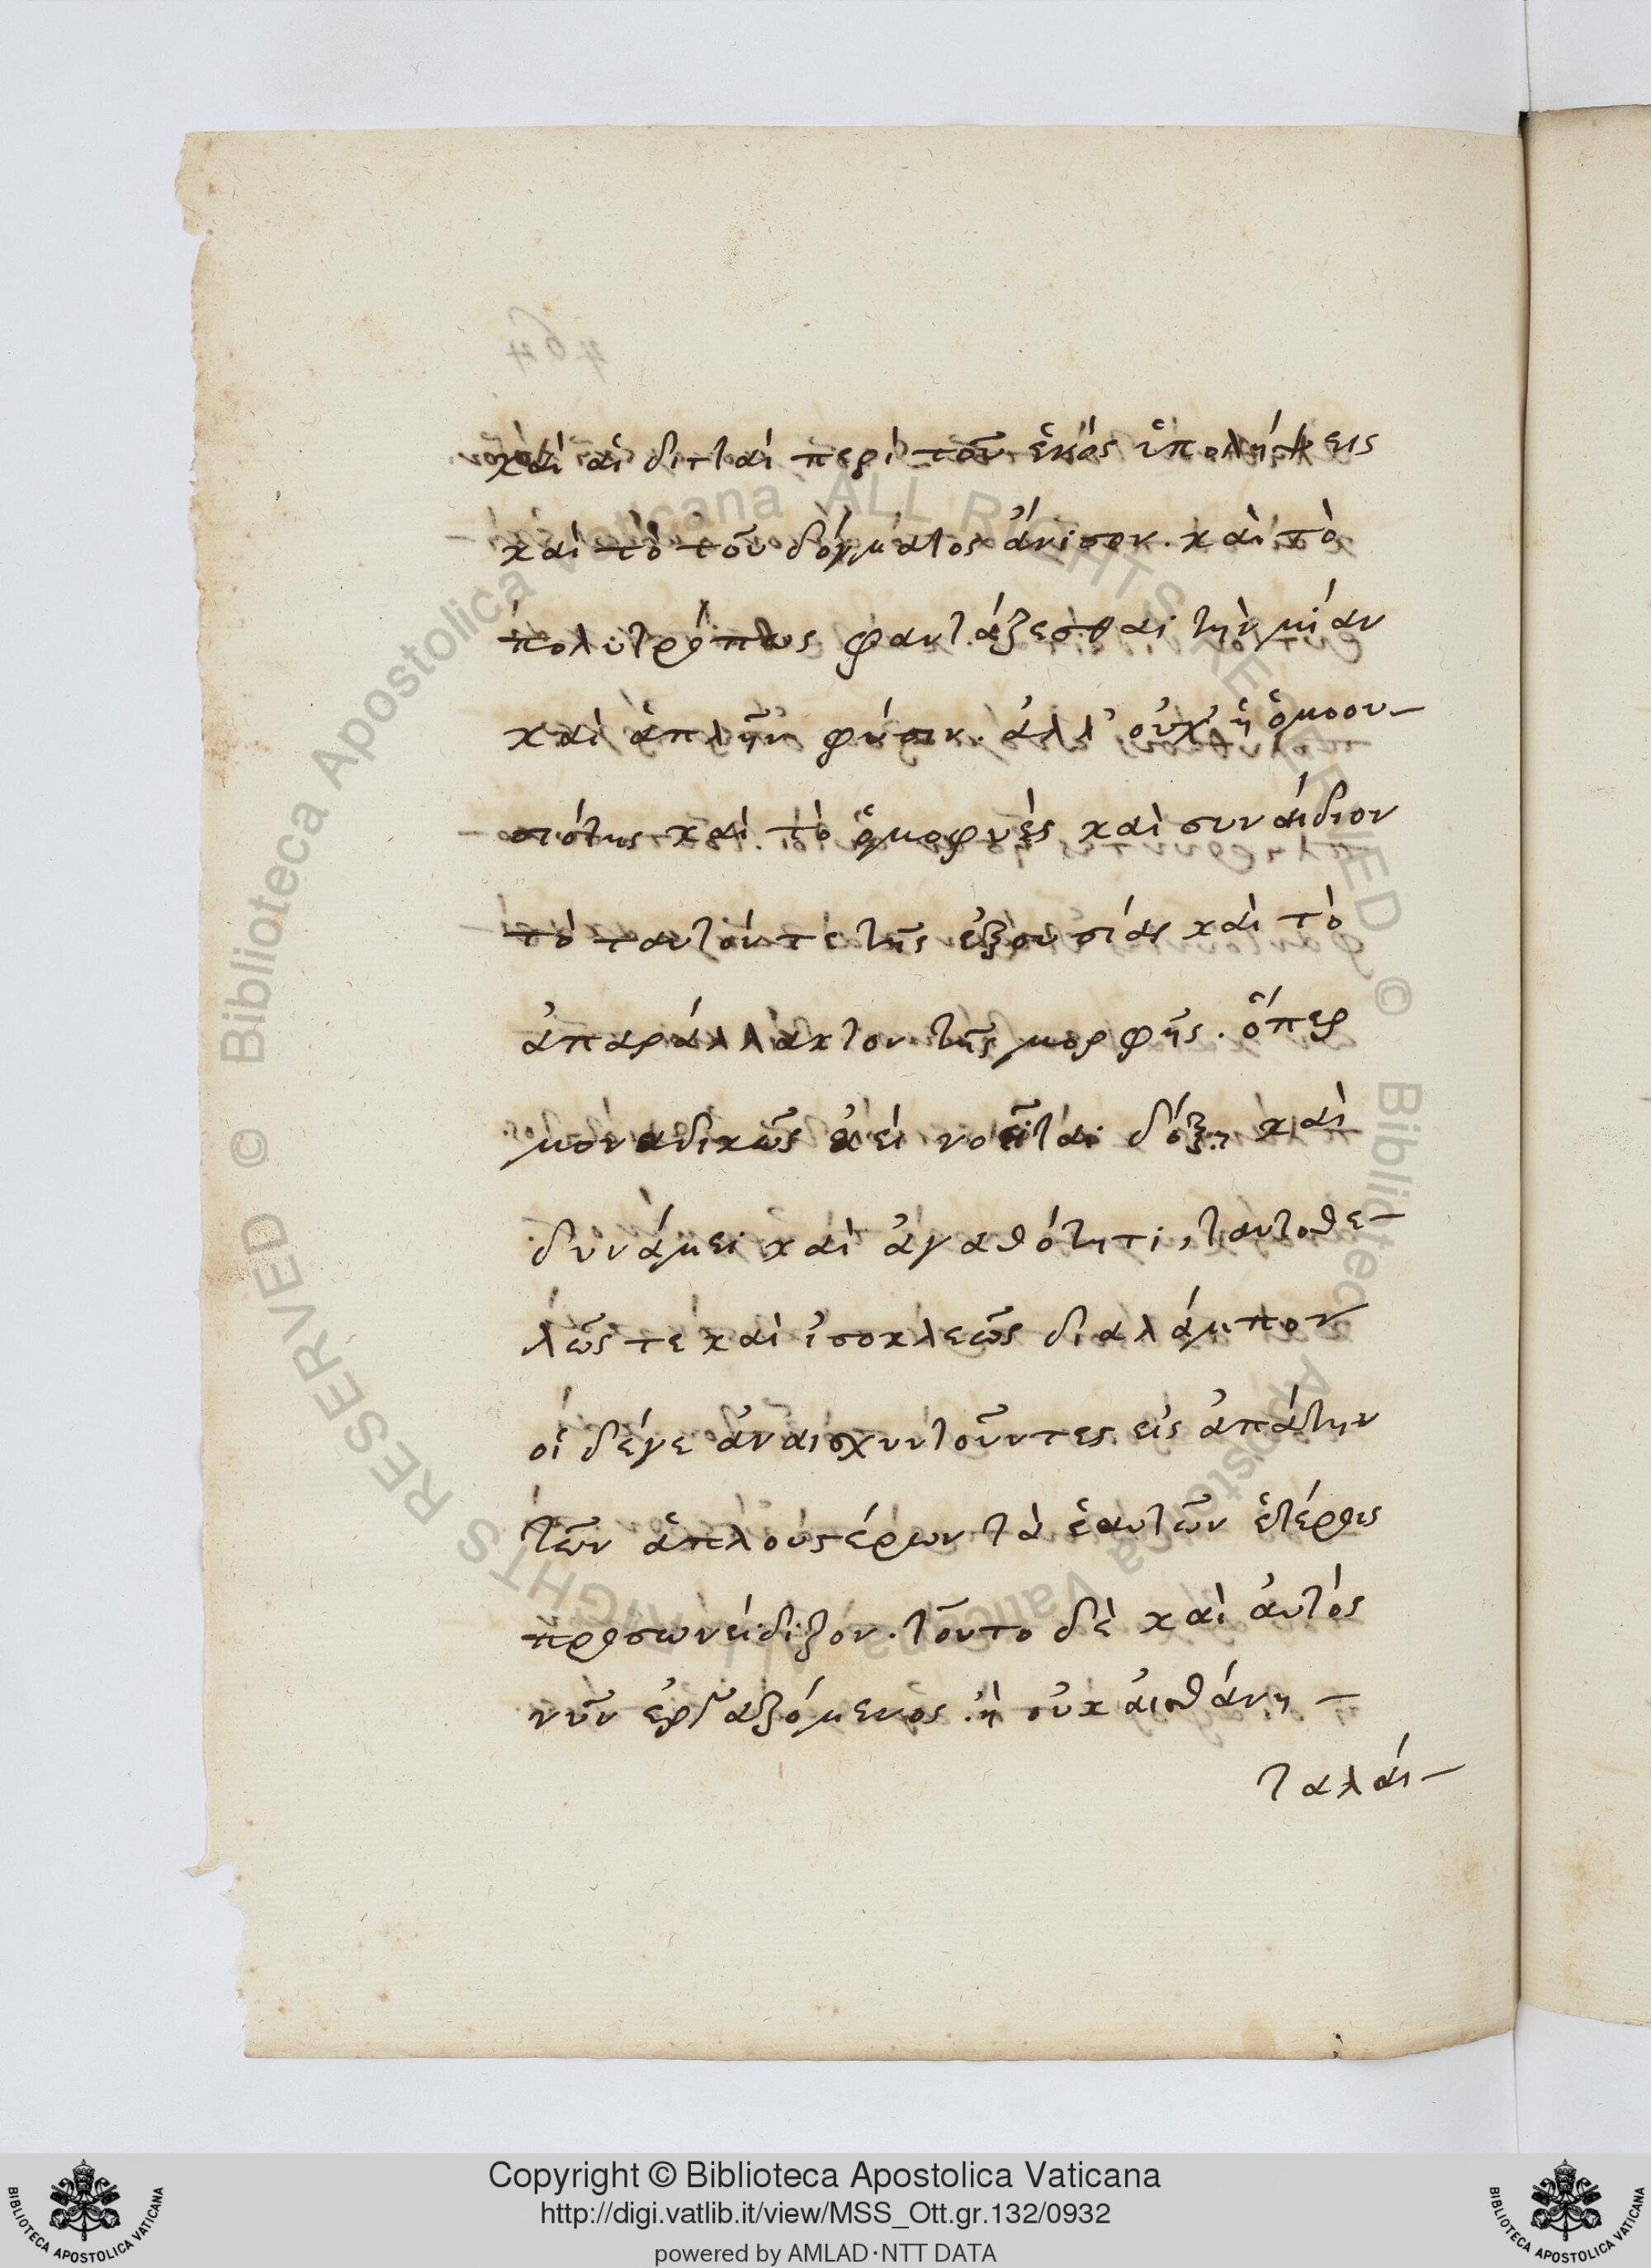 καὶ αἱ διτταὶ περὶ τοῦ ἑνός ὑπολήψεις
καὶ τὸ τοῦ δόγματος ἄνισον. καὶ τὸ
πολυτρόπως φαντάζεσθαι τὴν μίαν
καὶ ἁπλῆν φύσιν. ἀλλ' οὐχ' ἡ ὁμοου-
σιότης καὶ τὸ ὁμοφυὲς καὶ συναΐδιον
τὸ ταυτόν τε τῆς ἐξουσίας καὶ τὸ
ἀπαράλλακτον τῆς μορφῆς. ὅπερ
μοναδικῶς ἀεὶ νοεῖται δόξῃ καὶ
δυνάμει καὶ ἀγαθότητι, ταυτοθε-
λῶς τὲ καὶ ἰσοκλεῶς διαλάμπον
οἱ δέγε ἀναισχυντοῦντες εἰς ἀπάτην
τῶν ἁπλουστέρων τὰ ἑαυτῶν ἑτέροις
προσωνείδιζον. τοῦτο δὲ καὶ αὐτὸς
νῦν ἐργαζόμενος. ἢ οὐκ αἰσθάνῃ -
ταλαί-
464
Copyright © Biblioteca Apostolica Vaticana
http://digi.vatlib.it/view/MSS_Ott.gr.132/0932
powered by AMLAD·NTT DATA
BIBLIOTECA APOSTOLICA VATICANA
BIBLIOTECA APOSTOLICA VATICANA
© Biblioteca Apostolica Vaticana ALL RIGHTS RESERVED
© Biblioteca Apostolica Vaticana ALL RIGHTS RESERVED